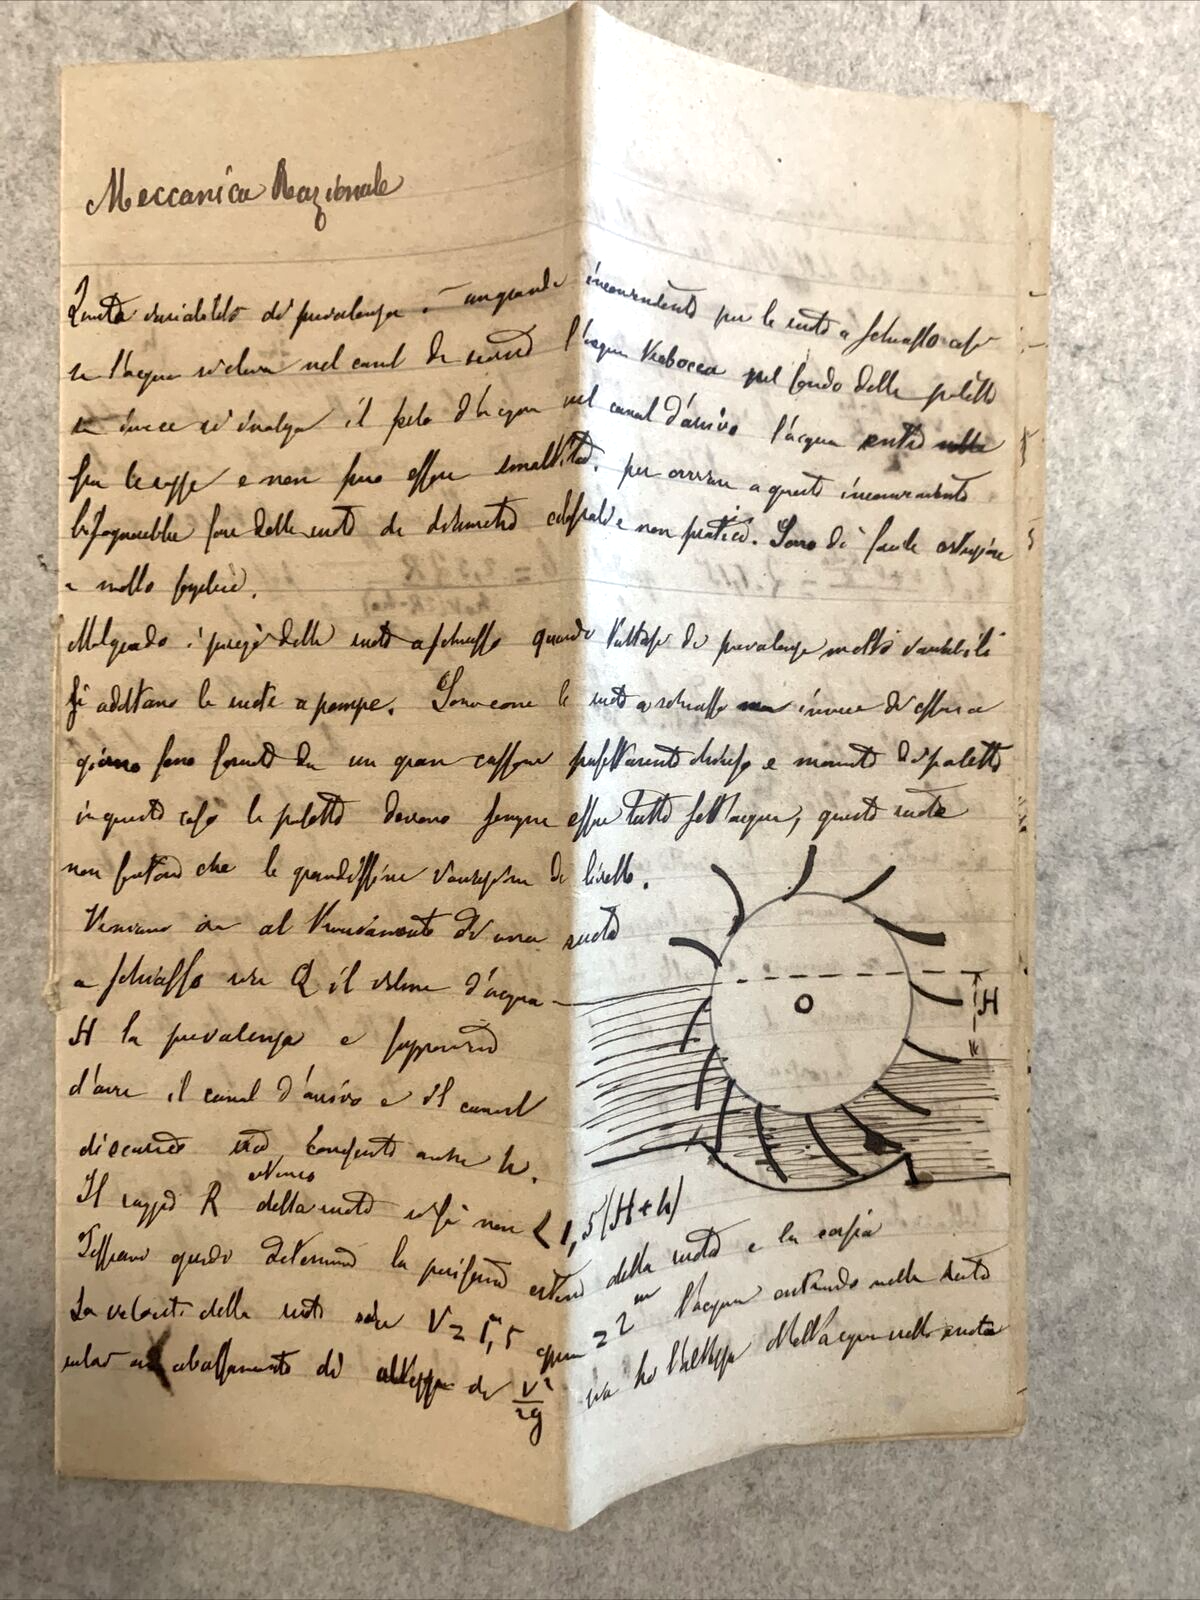 Meccanica Razionale
Questa variabilità di prevalenza è un grande inconveniente per le ruote a schiaffo
se l'acqua si eleva nel canal di scarico l'acqua trabocca nel fondo delle palette
se invece si inalza il pelo d'acqua nel canal d'arrivo l'acqua entra nelle
fra le e non può essere smaltita. per ovviare a questo inconveniente
bisognerebbe fare delle ruote di diametro colossale e non pratico. Sono di facile
e molto semplici.
Malgrado i pregi delle ruote a schiaffo quando trattasi di prevalenze molto variabili
si adottano le ruote a pompe. Sono come le ruote a schiaffo ma invece di essere a
giorno sono formate da un gran cassone perfettamente chiuso e munito di palette
in questo caso le palette devono sempre essere tutte sott'acqua, queste ruote
non che le grandissime variazioni di livello.
Veniamo ora al di una ruota
a schiaffo sia Q il volume d'acqua
H la prevalenza e supponiamo
d'avere il canal d'arrivo e il canal
di scarico anche h.
esterno
Il raggio R della ruota si fa non < 1,5(H+h)
Possiamo quindi determinare la periferia esterna della ruota e la
La velocità della ruota sia V = 1,5 oppure = 2 m l'acqua entrando nella ruota
subisce un abbassamento di altezza di v²/2g sia ho l'altezza dell'acqua nella ruota
O
H